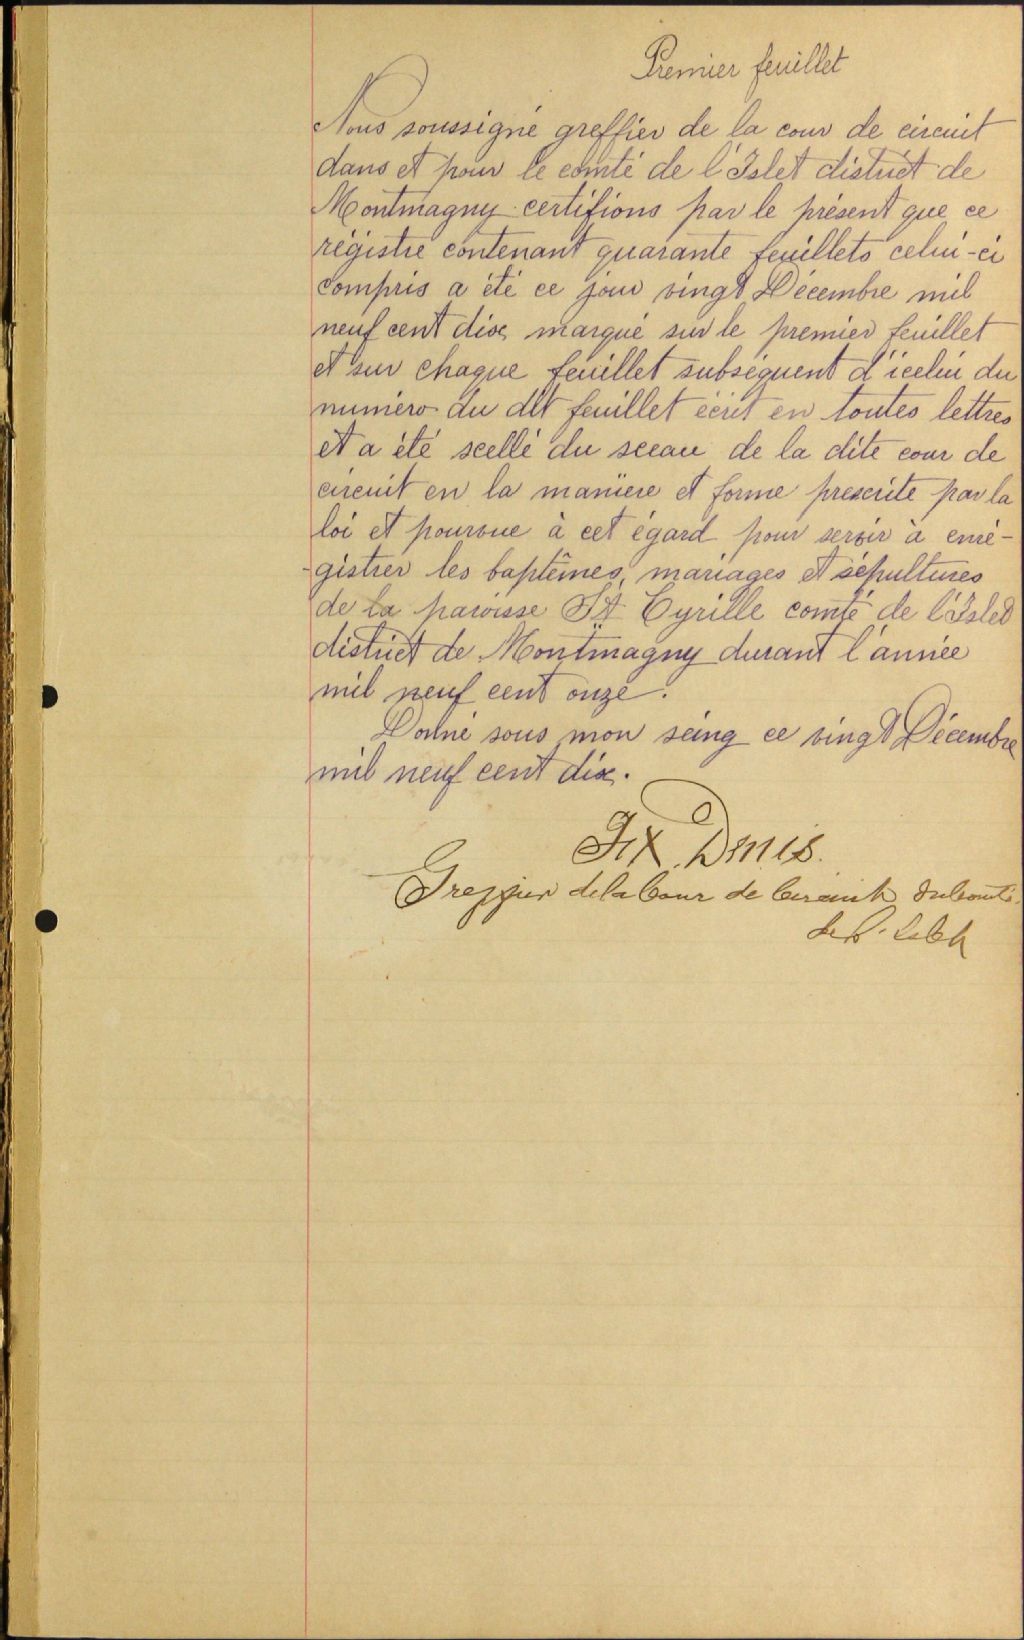 Premier feuillet
Nous soussigné greffier de la cour de circuit
dans et pour le comté de l'Islet district de
Montmagny certifions par le présent que ce
régistre contenant quarante feuillets celui-ci
compris a été ce jour vingt Décembre mil
neuf cent dix marqué sur le premier feuillet
et sur chaque feuillet subséquent d'icelui du
numéro du dit feuillet écrit en toutes lettres
et a été scellé du sceau de la dite cour de
circuit en la manière et forme prescrite par la
loi et pourvue à cet égard pour servir à enré-
-gistrer les baptêmes, mariages et sépultures
de la paroisse St Cyrille comté de l'Islet
district de Montmagny durant l'année
mil neuf cent onze.
Donné sous mon seing ce vingt Décembre
mil neuf cent dix.
Denis.
Greffier de la Cour de Circuit du Comté
de l'Islet